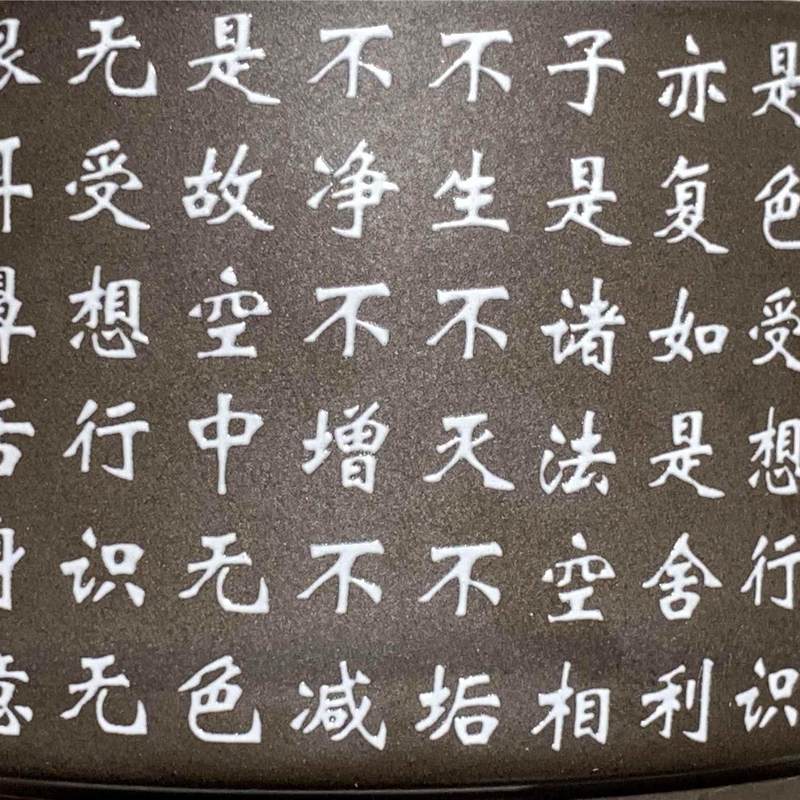 是色受想行识
亦复如是舍利
子是诸法空相
不生不灭不垢
不净不增不减
是故空中无色
无受想行识无
眼耳鼻舌身意